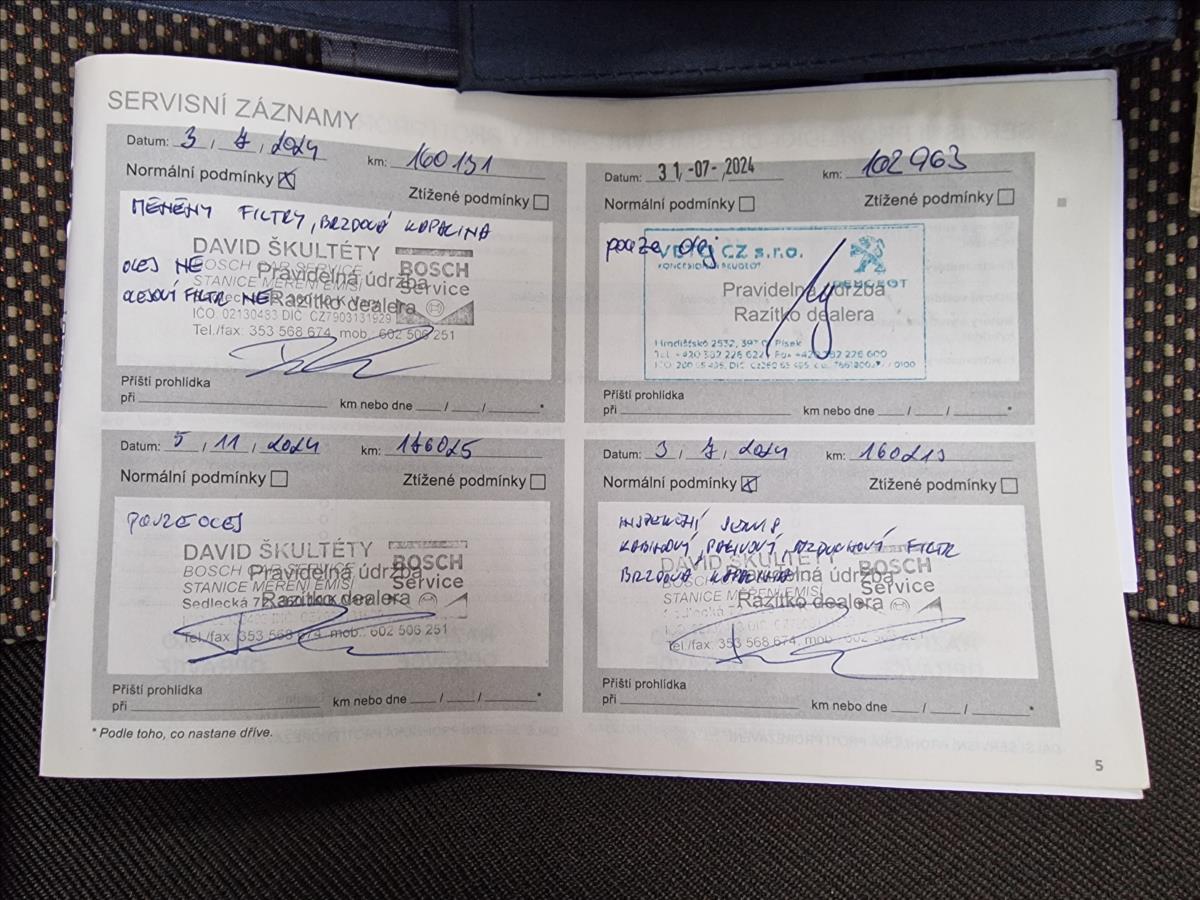 SERVISNÍ ZÁZNAMY
Datum: 3, 7, 2024 km: 160191
Normální podmínky Ztížené podmínky
MĚNĚNY FILTRY, BRZDOVÁ KAPALINA
DAVID ŠKULTÉTY BOSCH
OLEJ NE BOSCH CAR SERVICE Pravidelná údržba Service
STANICE MĚŘENÍ EMISÍ
OLEJOVÝ FILTR NE Razítko dealera
IČO 02130483 DIČ CZ7903131929
Tel./fax: 353 568 674, mob.: 602 506 251
Příští prohlídka
při km nebo dne / / *
Datum: 31.-07-.2024 km: 102963
Normální podmínky Ztížené podmínky
pouze olej CZ s.r.o.
PEUGEOT
Pravidelná údržba
Razítko dealera
Hradišťská 2532, 397 01 Písek
Tel. +420 382 226 622 Fax +420 382 226 600
Příští prohlídka
při km nebo dne / / *
Datum: 5, 11, 2024 km: 176025
Normální podmínky Ztížené podmínky
POUZE OLEJ
DAVID ŠKULTÉTY BOSCH
BOSCH CAR SERVICE Pravidelná údržba Service
STANICE MĚŘENÍ EMISÍ
Sedlecká Razítko dealera
Tel./fax: 353 568 674, mob.: 602 506 251
Příští prohlídka
při km nebo dne / / *
Datum: 3, 7, 2024 km: 160213
Normální podmínky Ztížené podmínky
INSPEKČNÍ
KABINOVÝ, PALIVOVÝ, VZDUCHOVÝ FILTR
DAVID ŠKULTÉTY BOSCH
BRZDOVÁ KAPALINA Pravidelná údržba Service
STANICE MĚŘENÍ EMISÍ
Razítko dealera
Tel./fax: 353 568 674, mob.: 602 506 251
Příští prohlídka
při km nebo dne / / *
* Podle toho, co nastane dříve.
5